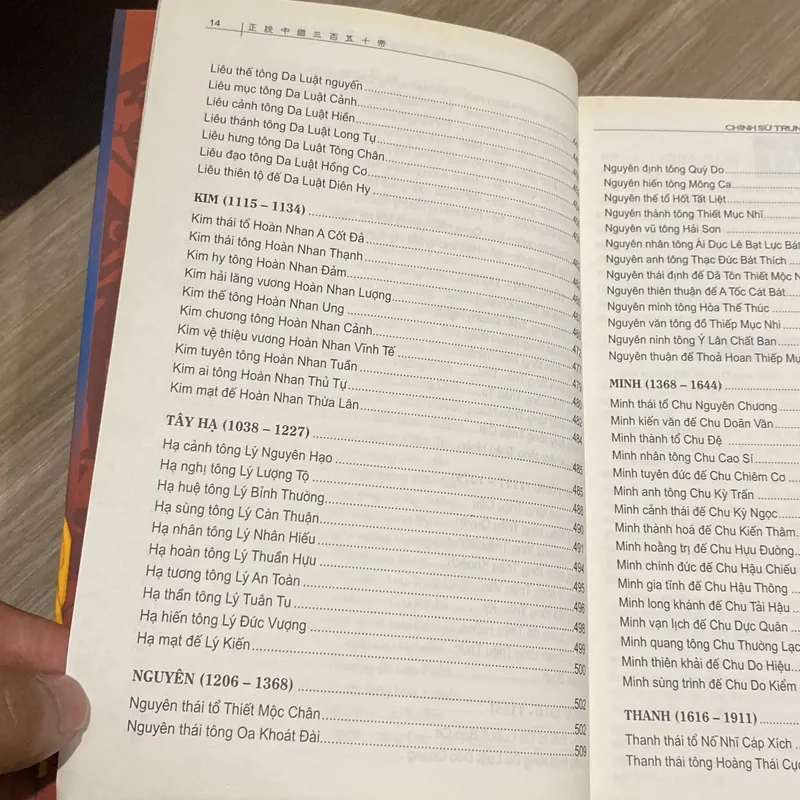 14
正說中國三百五十帝
Liêu thế tông Da Luật nguyến
Liêu mục tông Da Luật Cảnh
Liêu cảnh tông Da Luật Hiền
Liêu thánh tông Da Luật Long Tự
Liêu hưng tông Da Luật Tông Chân
Liêu đạo tông Da Luật Hồng Cơ
Liêu thiên tộ đế Da Luật Diên Hy
KIM (1115 – 1134)
Kim thái tổ Hoàn Nhan A Cốt Đả
Kim thái tông Hoàn Nhan Thạnh
Kim hy tông Hoàn Nhan Đảm
Kim hải lăng vương Hoàn Nhan Lượng
Kim thế tông Hoàn Nhan Ung
Kim chương tông Hoàn Nhan Cảnh 472
Kim vệ thiệu vương Hoàn Nhan Vĩnh Tế
Kim tuyên tông Hoàn Nhan Tuấn 479
Kim ai tông Hoàn Nhan Thủ Tự 480
Kim mạt đế Hoàn Nhan Thừa Lân 482
484
TÂY HẠ (1038 – 1227) 485
Hạ cảnh tông Lý Nguyên Hạo 485
Hạ nghị tông Lý Lượng Tộ 488
Hạ huệ tông Lý Bỉnh Thường 490
Hạ sùng tông Lý Càn Thuận 491
Hạ nhân tông Lý Nhân Hiếu 494
Hạ hoàn tông Lý Thuần Hựu 495
Hạ tương tông Lý An Toàn 496
Hạ thần tông Lý Tuân Tu 498
Hạ hiến tông Lý Đức Vượng 499
Hạ mạt đế Lý Kiến 500
NGUYÊN (1206 – 1368) 502
Nguyên thái tổ Thiết Mộc Chân 502
Nguyên thái tông Oa Khoát Đài 509
CHÍNH SỬ TRUN
Nguyên định tông Quý Do
Nguyên hiến tông Mông Ca
Nguyên thế tổ Hốt Tất Liệt
Nguyên thành tông Thiết Mục Nhĩ
Nguyên vũ tông Hải Sơn
Nguyên nhân tông Ái Dục Lê Bạt Lực Bát
Nguyên anh tông Thạc Đức Bát Thích
Nguyên thái định đế Dã Tôn Thiết Mộc N
Nguyên thiên thuận đế A Tốc Cát Bát
Nguyên minh tông Hòa Thế Thúc
Nguyên văn tông đồ Thiếp Mục Nhi
Nguyên ninh tông Ý Lân Chất Ban
Nguyên thuận đế Thoả Hoan Thiếp Mụ
MINH (1368 – 1644)
Minh thái tổ Chu Nguyên Chương
Minh kiến văn đế Chu Doãn Văn
Minh thành tổ Chu Đệ
Minh nhân tông Chu Cao Sí
Minh tuyên đức đế Chu Chiêm Cơ
Minh anh tông Chu Kỳ Trấn
Minh cảnh thái đế Chu Kỳ Ngọc
Minh thành hoá đế Chu Kiến Thâm
Minh hoằng trị đế Chu Hựu Đường
Minh chính đức đế Chu Hậu Chiếu
Minh gia tĩnh đế Chu Hậu Thông
Minh long khánh đế Chu Tải Hậu
Minh vạn lịch đế Chu Dực Quân
Minh quang tông Chu Thường Lạc
Minh thiên khải đế Chu Do Hiệu
Minh sùng trinh đế Chu Do Kiểm
THANH (1616 – 1911)
Thanh thái tổ Nỗ Nhĩ Cáp Xích
Thanh thái tông Hoàng Thái Cực